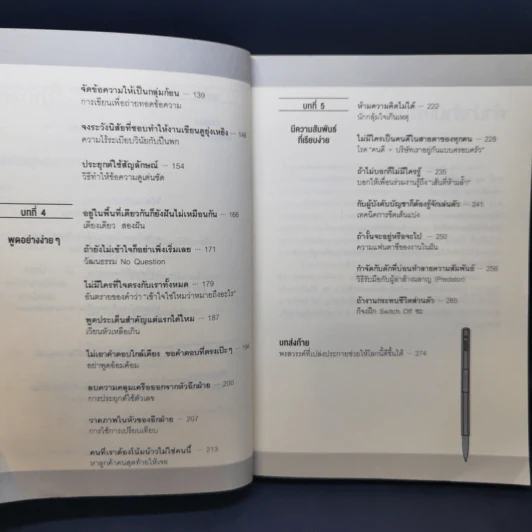 จัดข้อความให้เป็นกลุ่มก้อน — 139
การเขียนเพื่อถ่ายทอดข้อความ
จงระวังนิสัยที่ชอบทำให้งานเขียนดูยุ่งเหยิง — 146
ความไร้ระเบียบวินัยกับปีนพก
ประยุกต์ใช้สัญลักษณ์ — 154
วิธีทำให้ข้อความดูเด่นชัด
บทที่ 4
พูดอย่างง่าย ๆ
อยู่ในพื้นที่เดียวกันก็ยังฝันไม่เหมือนกัน — 166
เตียงเดียว สองฝัน
ถ้ายังไม่เข้าใจก็อย่าเพิ่งเริ่มเลย — 171
วัฒนธรรม No Question
ไม่มีใครที่ใจตรงกับเราทั้งหมด — 179
อันตรายของคำว่า "เข้าใจใช่ไหมว่าหมายถึงอะไร"
พูดประเด็นสำคัญแต่แรกได้ไหม — 187
เวียนหัวเหลือเกิน
ไม่เอาคำตอบใกล้เคียง ขอคำตอบที่ตรงเป๊ะๆ — 194
อย่าพูดอ้อมค้อม
ลบความคลุมเครือออกจากหัวอีกฝ่าย — 200
การประยุกต์ใช้ตัวเลข
วาดภาพในหัวของอีกฝ่าย — 207
การใช้การเปรียบเทียบ
คนที่เราต้องโน้มน้าวไม่ใช่คนนี้ — 213
หาลูกค้าคนสุดท้ายให้เจอ
บทที่ 5
มีความสัมพันธ์
ที่เรียบง่าย
ห้ามความคิดไม่ได้ — 222
นักกลุ้มใจเกินเหตุ
ไม่มีใครเป็นคนดีในสายตาของทุกคน — 228
โรค "คนดี + บริษัทเราอยู่กันแบบครอบครัว"
ถ้าไม่บอกก็ไม่มีใครรู้ — 235
บอกให้เพื่อนร่วมงานรู้ถึง "เส้นที่ห้ามล้ำ"
กับผู้บังคับบัญชาก็ต้องรู้จักเล่นตัว — 241
เทคนิคการขีดเส้นแบ่ง
ถ้างั้นจะอยู่หรือจะไป — 250
ความแฟนตาซีของงานในฝัน
กำจัดกับดักที่บ่อนทำลายความสัมพันธ์ — 256
วิธีรับมือกับผู้ล่าล้างผลาญ (Predator)
ถ้างานกระทบชีวิตส่วนตัว — 265
ก็จงฝึก Switch Off ซะ
บทส่งท้าย
พงสวรรค์ที่เปล่งประกายช่วยให้โลกนี้ดีขึ้นได้ — 274